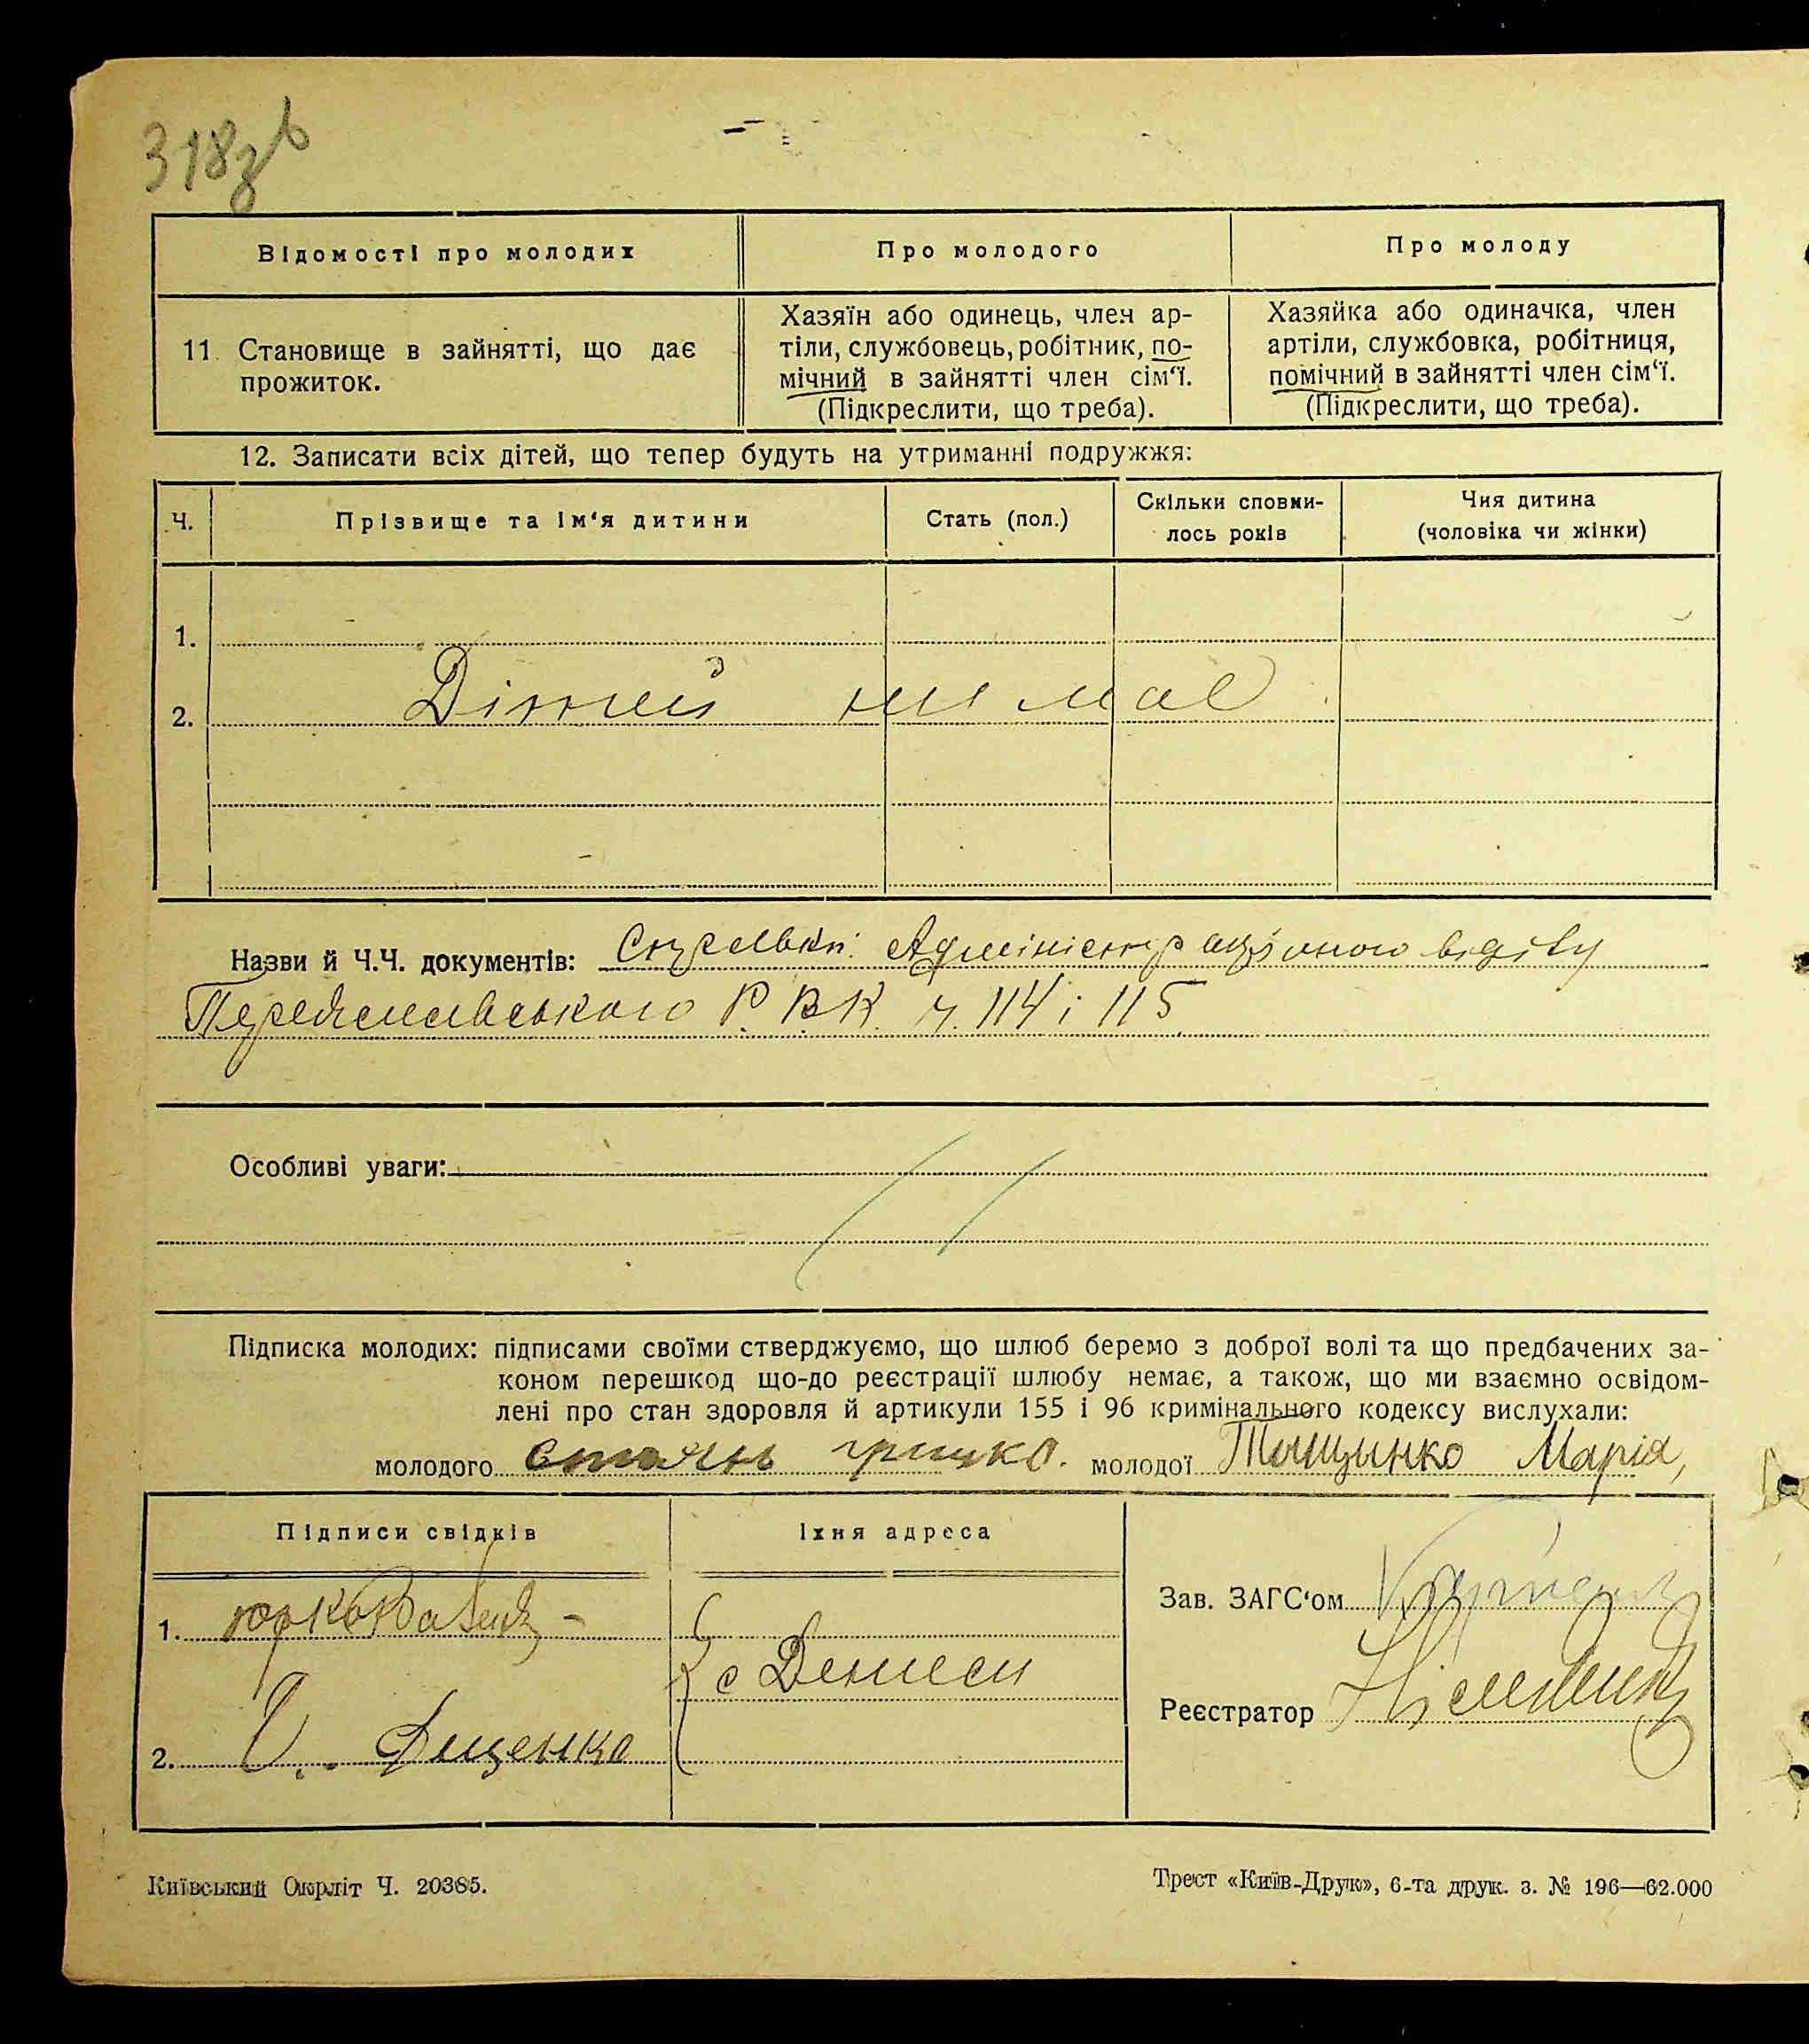 318зв
Відомості про молодих
Про молодого
Про молоду
11. Становище в зайнятті, що дає
прожиток.
Хазяїн або одинець, член ар-
тіли, службовець, робітник, по-
мічний в зайнятті член сім‘ї.
(Підкреслити, що треба).
Хазяйка або одиначка, член
артіли, службовка, робітниця,
помічний в зайнятті член сім‘ї.
(Підкреслити, що треба).
12. Записати всіх дітей, що тепер будуть на утриманні подружжя:
Ч.
Прізвище та ім‘я дитини
Стать (пол.)
Скільки сповни-
лось років
Чия дитина
(чоловіка чи жінки)
1.
2. Дітей не має
Назви й Ч.Ч. документів: Адміністраційного віділу
Переяславського Р.В.К. ч. 114 і 115
Особливі уваги:
Підписка молодих: підписами своїми стверджуємо, що шлюб беремо з доброї волі та що предбачених за-
коном перешкод що-до реєстрації шлюбу немає, а також, що ми взаємно освідом-
лені про стан здоровля й артикули 155 і 96 кримінального кодексу вислухали:
молодого грицко. молодої Марія,
Підписи свідків
Їхня адреса
1.
с Денеси
2. Дищенко
Зав. ЗАГС‘ом
Реєстратор
Київський Окрліт Ч. 20385.
Трест «Київ-Друк», 6-та друк. з. № 196—62.000